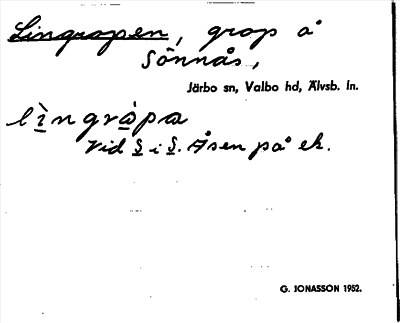 Lingropen, grop å
Sönnås,
Järbo sn, Valbo hd, Älvsb. ln.
lìngràpa
Vid S i S. Åsen på ek.
G. JONASSON 1952.